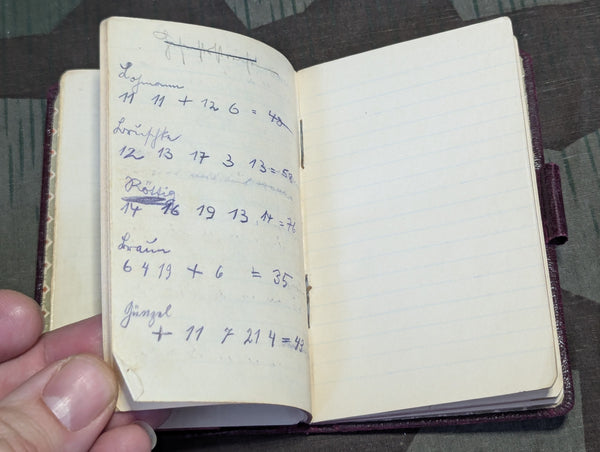 11 11 + 12 6 = 40
Bruschke
12 13 17 3 13 = 58
Röttig
14 16 19 13 14 = 76
Braun
6 4 19 + 6 = 35
Günzel
+ 11 7 21 4 = 43